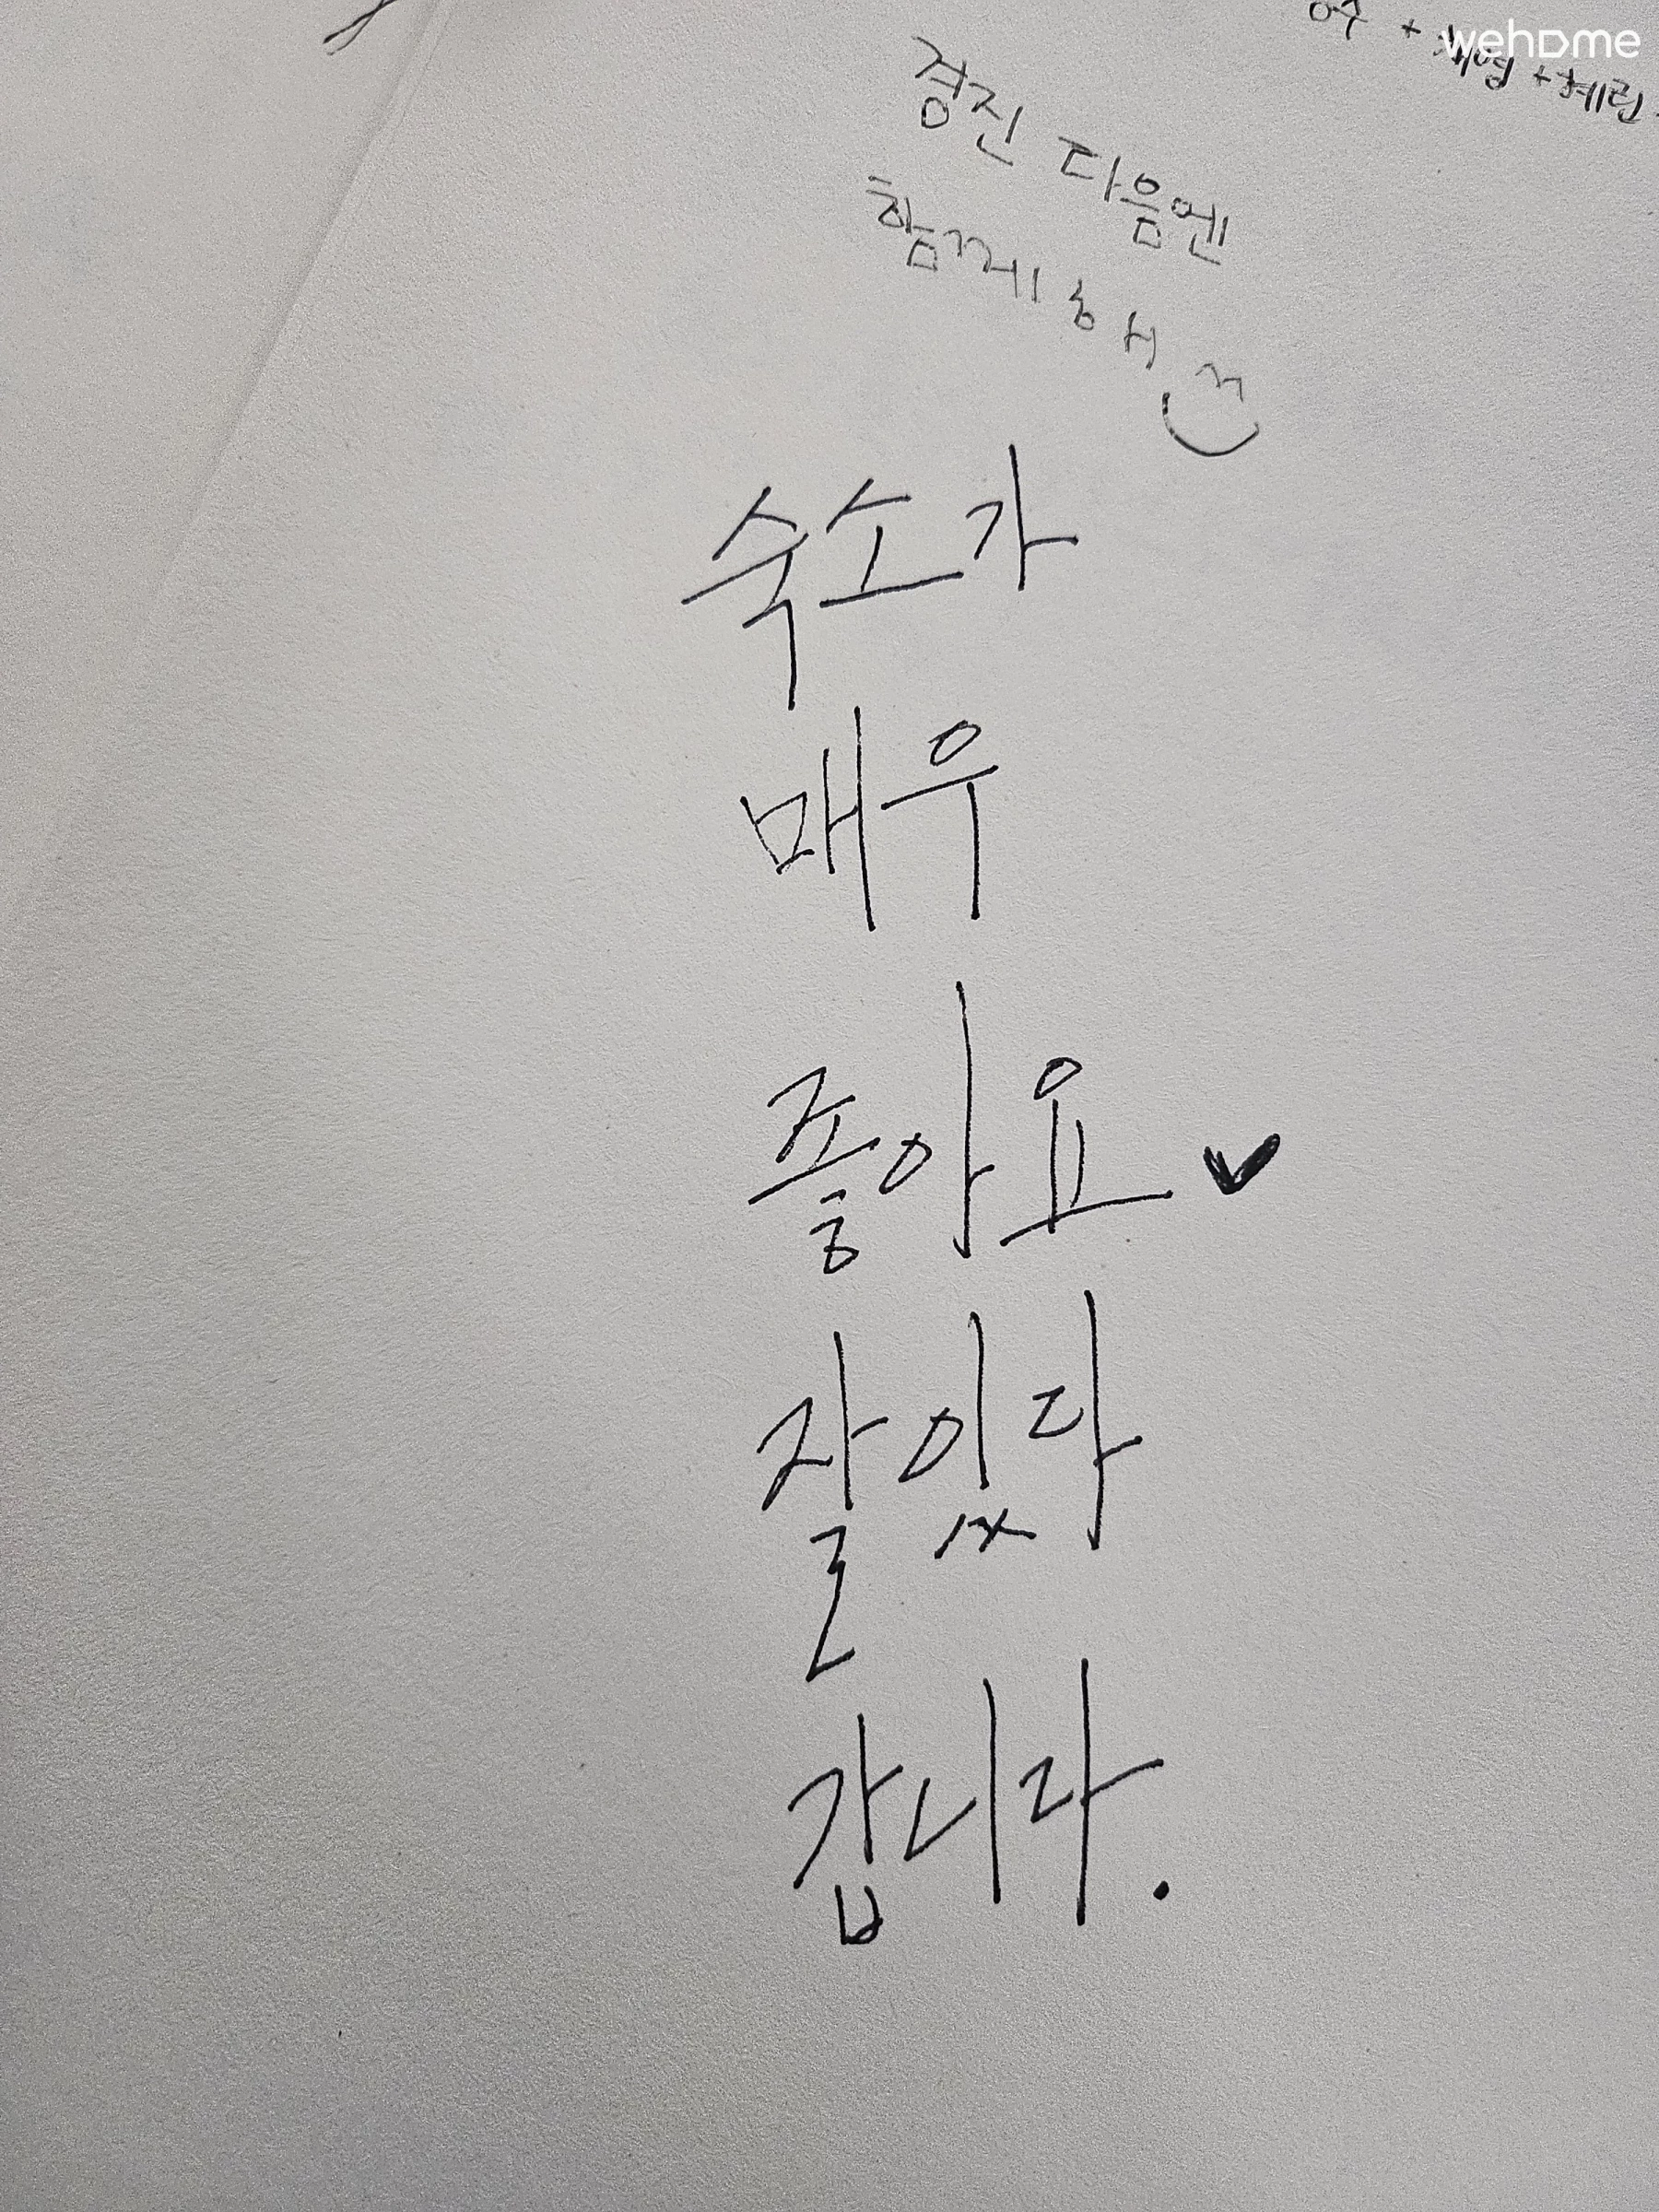 wehome
경진 다음엔
함께해
숙소가
매우
좋아요♥
잘있다
갑니다.